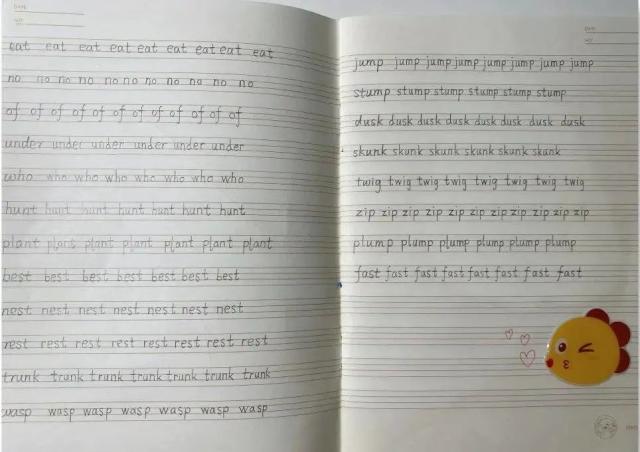 eat eat eat eat eat eat eat eat eat
no no no no no no no no no no no
of of of of of of of of of of of of
under under under under under under
who who who who who who who who
hunt hunt hunt hunt hunt hunt hunt
plant plant plant plant plant plant plant
best best best best best best best
nest nest nest nest nest nest nest
rest rest rest rest rest rest rest rest
trunk trunk trunk trunk trunk trunk trunk
wasp wasp wasp wasp wasp wasp wasp
DATE
jump jump jump jump jump jump jump jump
stump stump stump stump stump stump
dusk dusk dusk dusk dusk dusk dusk dusk
skunk skunk skunk skunk skunk skunk
twig twig twig twig twig twig twig twig
zip zip zip zip zip zip zip zip zip zip
plump plump plump plump plump plump
fast fast fast fast fast fast fast fast